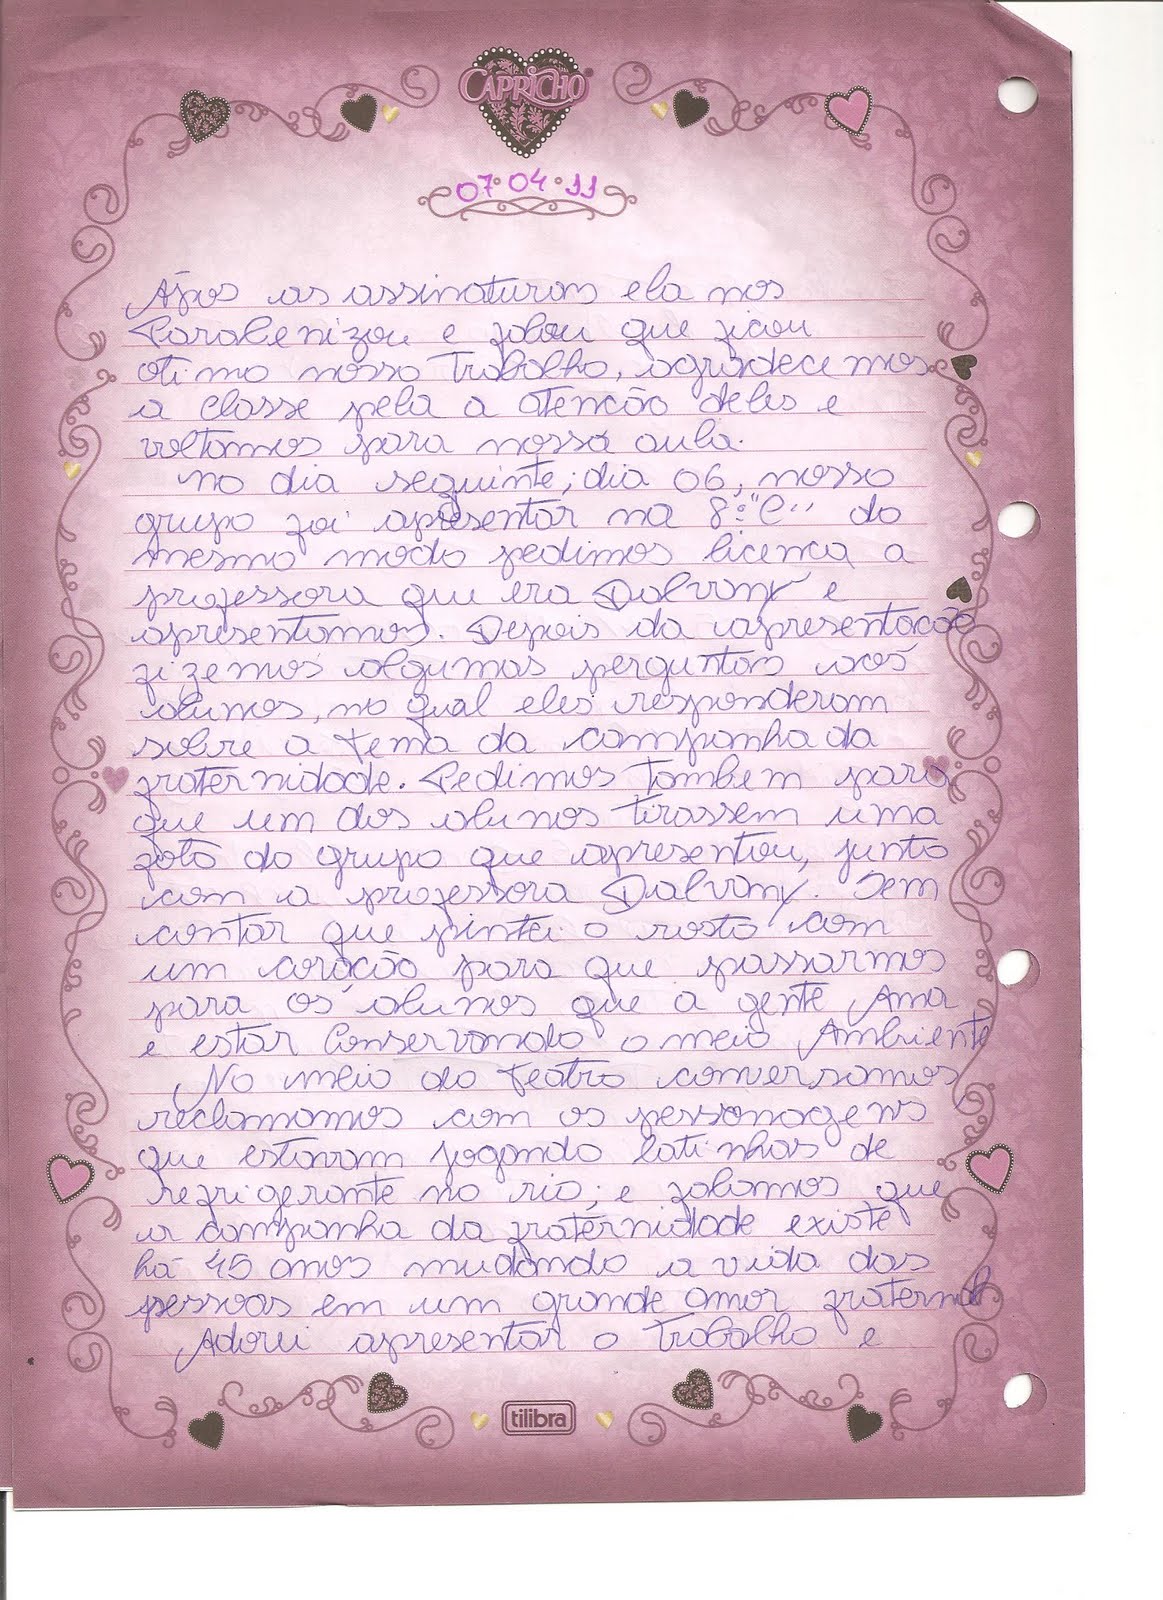 CAPRICHO
07 04 11
Após as assinaturas ela nos
Parabenizou e falou que ficou
otimo nosso Trabalho, agradecemos
a classe pela a atenção deles e
voltamos para nossa aula.
No dia seguinte; dia 06, nosso
grupo foi apresentar na 8ª "C" do
mesmo modo pedimos licença a
professora que era Dalvany e
apresentamos. Depois da apresentação
fizemos algumas perguntas aos
alunos, no qual eles responderam
sobre a tema da campanha da
fraternidade. Pedimos Tambem para
que um dos alunos tirassem uma
foto do grupo que apresentou, junto
com a professora Dalvany. Sem
contar que pintei o rosto com
um coração para que passarmos
para os alunos que a gente Ama
e estar Conservando o meio Ambiente
No meio do teatro conversamos
reclamamos com os personagens
que estavam jogando latinhas de
refrigerante no rio; e falamos que
a campanha da fraternidade existe
há 45 anos mudando a vida das
pessoas em um grande amor fraternal
Adorei apresentar o Trabalho e
tilibra